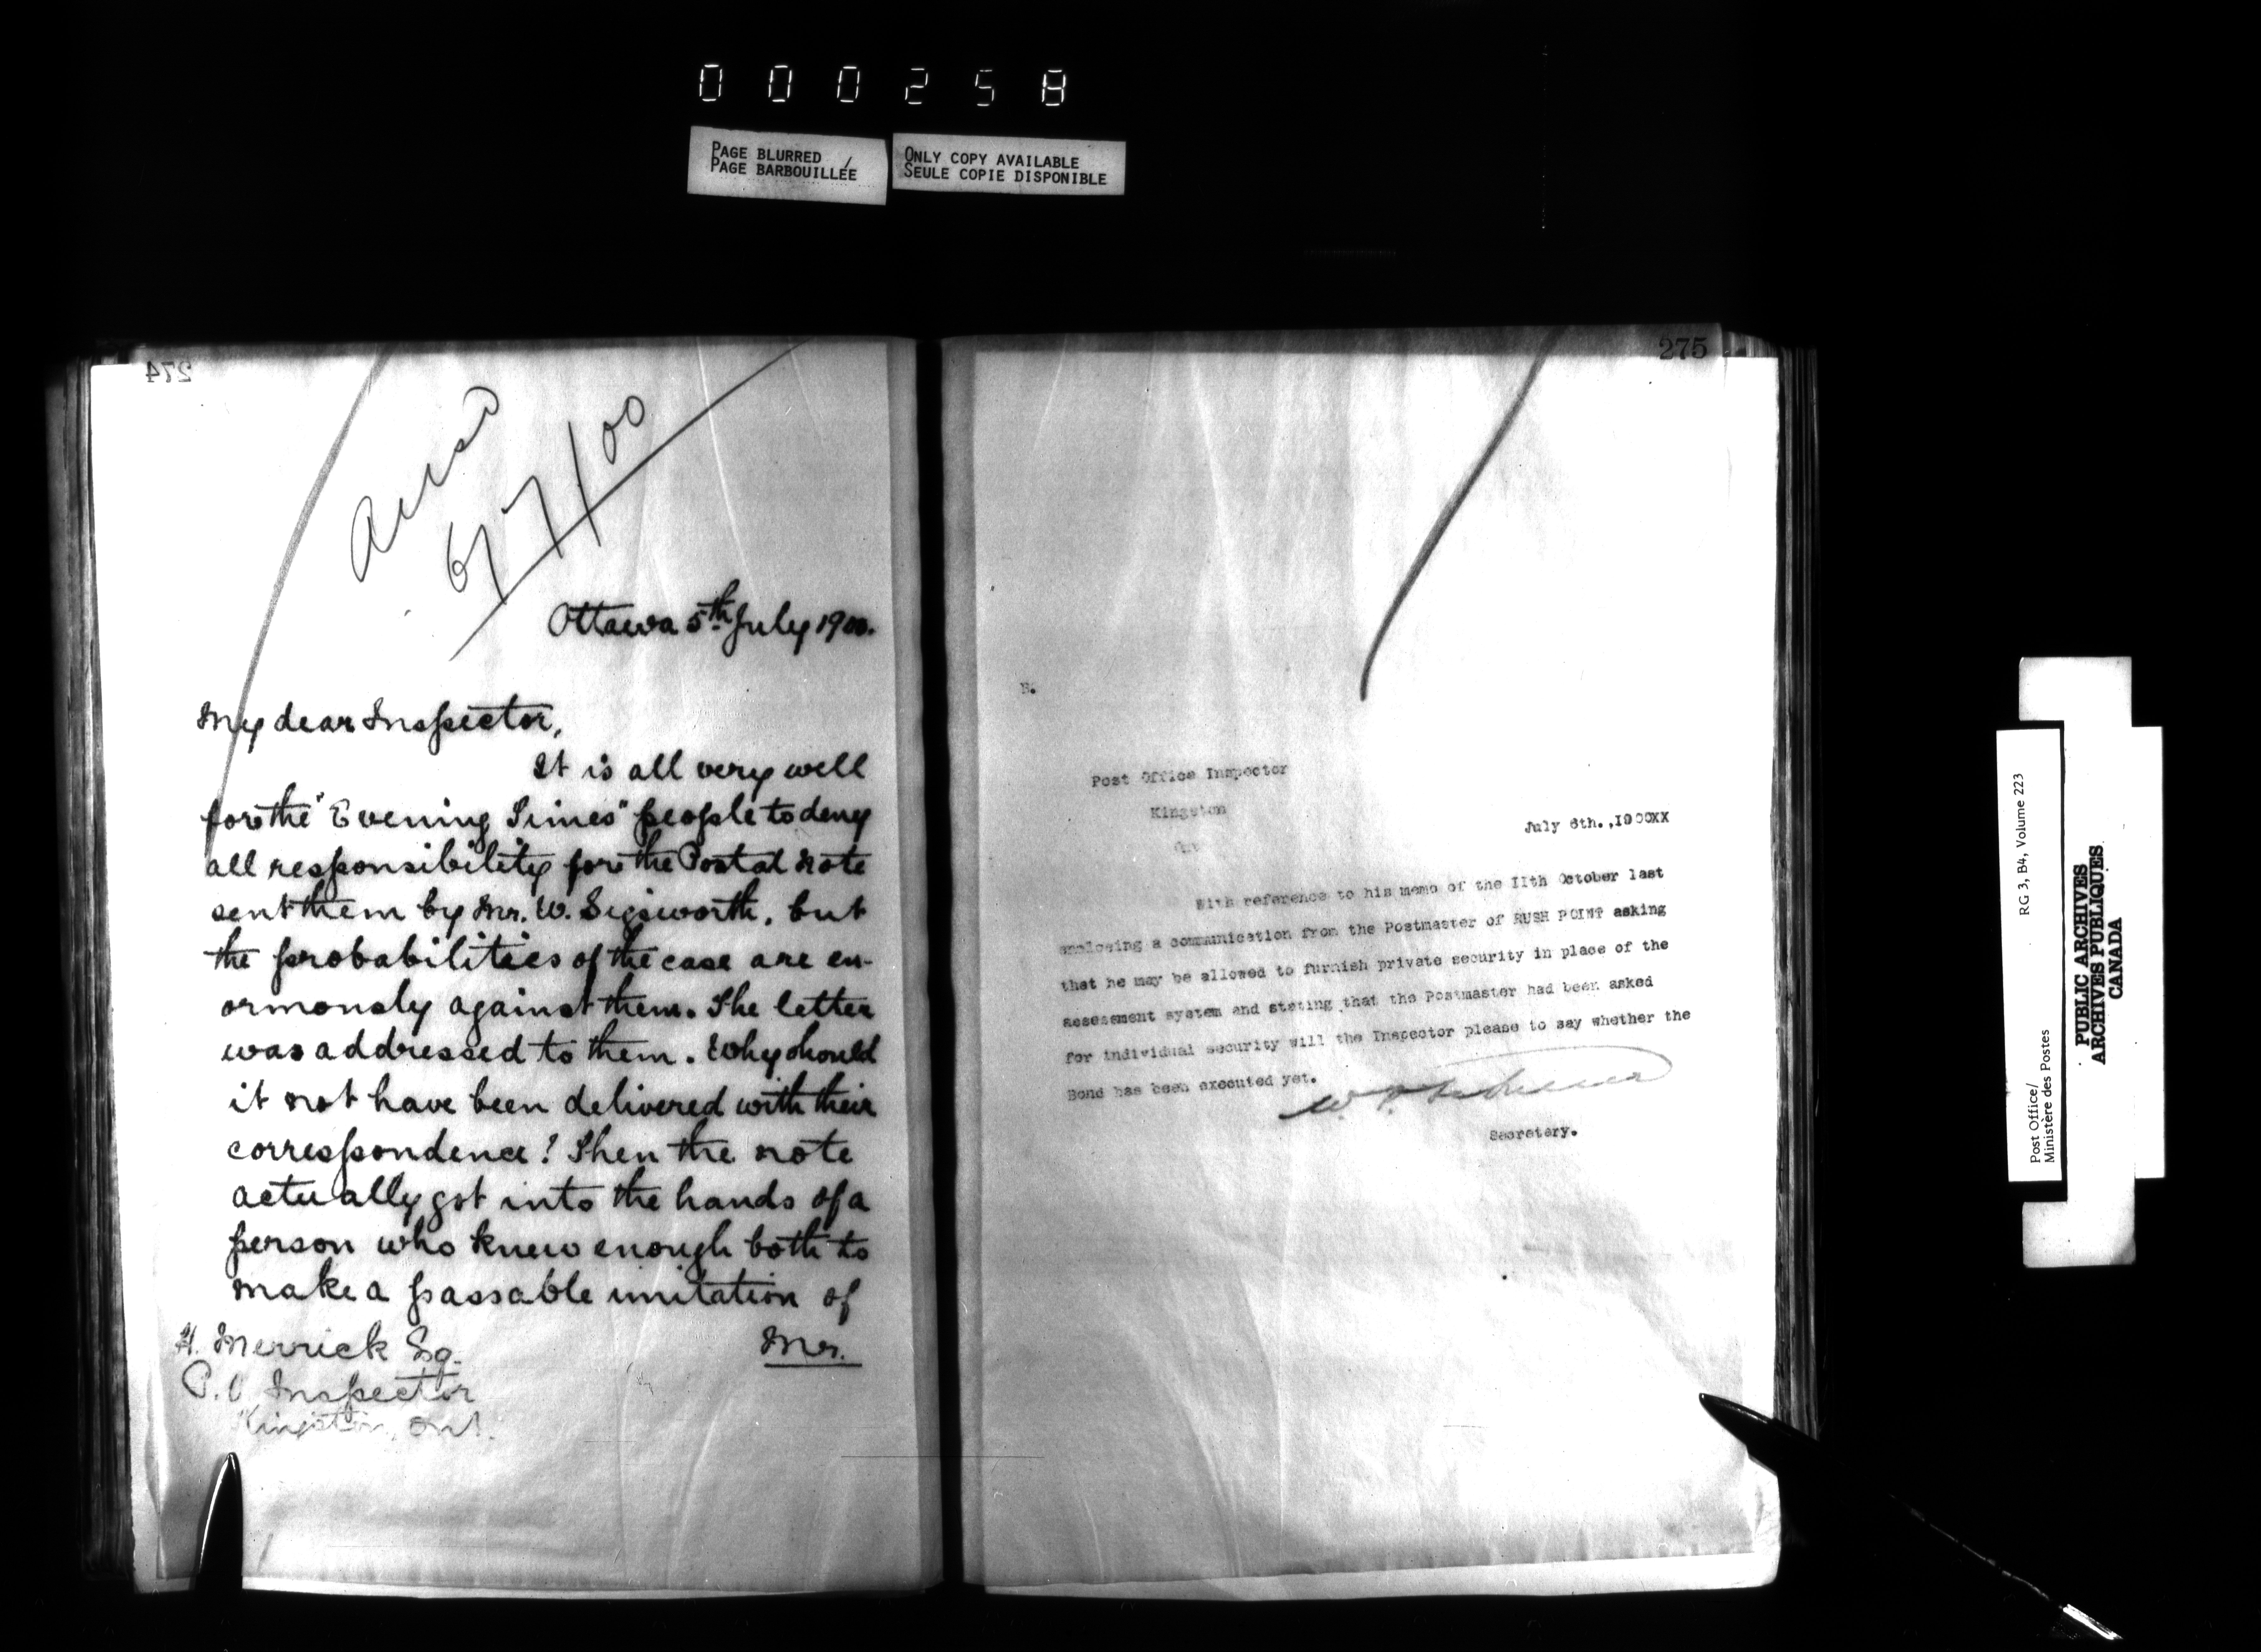 000258
PAGE BLURRED
PAGE BARBOUILLÉE
ONLY COPY AVAILABLE
SEULE COPIE DISPONIBLE
274
6/7/00
Ottawa 5th July 1900.
My dear Inspector,
It is all very well
for the "Evening Times" people to deny
all responsibility for the Postal note
sent them by Mr. W. Sigsworth, but
the probabilities of the case are en-
ormously against them. The letter
was addressed to them. Why should
it not have been delivered with their
correspondence? Then the note
actually got into the hands of a
person who knew enough both to
make a passable imitation of
Mr.
H. Merrick Esq.
P.O. Inspector
Kingston, Ont.
275
Post Office Inspector
Kingston
Ont
July 6th.,1900XX
With reference to his memo of the IIth October last
enclosing a communication from the Postmaster of RUSH POINT asking
that he may be allowed to furnish private security in place of the
assessment system and stating that the Postmaster had been asked
for individual security will the Inspector please to say whether the
Bond has been executed yet.
Secretary.
Post Office/
Ministère des Postes
RG 3, B4, Volume 223
PUBLIC ARCHIVES
ARCHIVES PUBLIQUES
CANADA